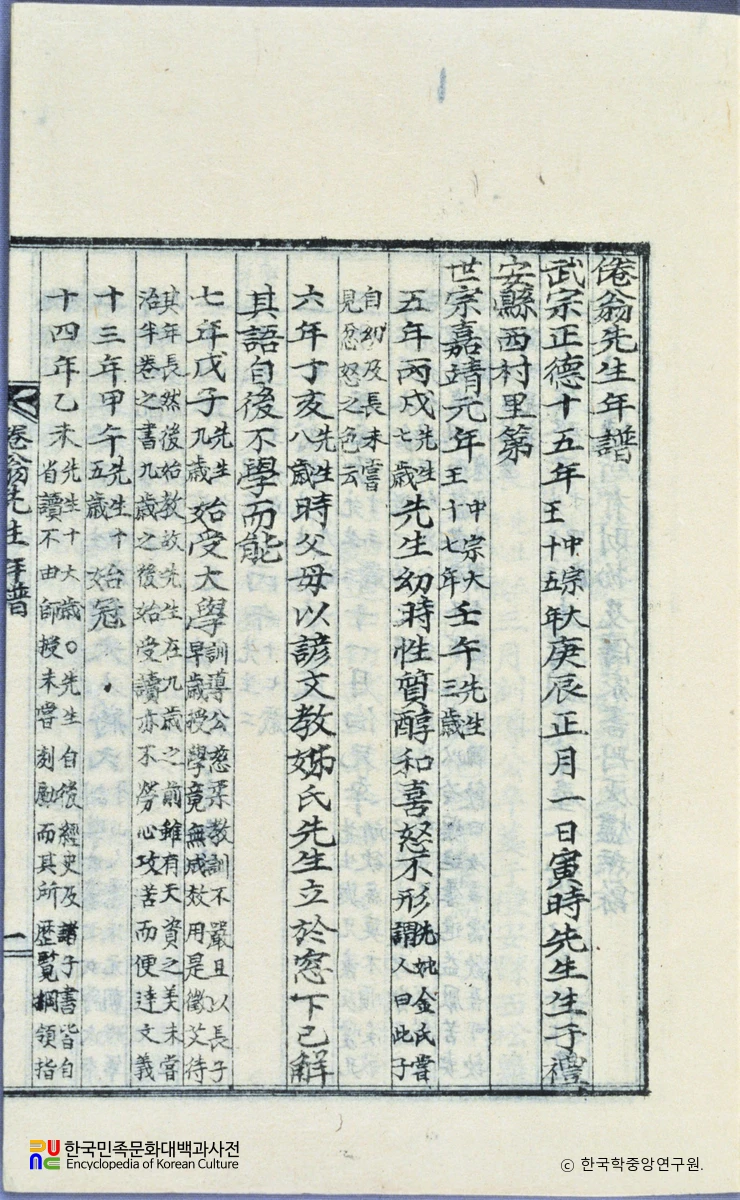 倦翁先生年譜
武宗正德十五年中宗大王十五年庚辰正月一日寅時先生生于禮
安縣西村里第
世宗嘉靖元年中宗大王十七年壬午先生三歲
五年丙戌先生七歲先生幼時性質醇和喜怒不形先妣金氏嘗謂人曰此子
自幼及長未嘗見忿怒之色云
六年丁亥先生八歲時父母以諺文教姊氏先生立於窓下已解
其語自後不學而能
七年戊子先生九歲始受大學訓導公慈柔教訓不嚴且以長子早歲授學竟無成效用是徵艾待
其年長然後始教故先生在九歲之前雖有天資之美未嘗治半卷之書九歲之後始受讀亦不勞心攻苦而便達文義
十三年甲午先生十五歲始冠
十四年乙未先生十六歲○先生自後經史及諸子書皆自省讀不由師授未嘗刻勵而其所歷覽綱領指
倦翁先生年譜 一
한국민족문화대백과사전
Encyclopedia of Korean Culture
© 한국학중앙연구원.